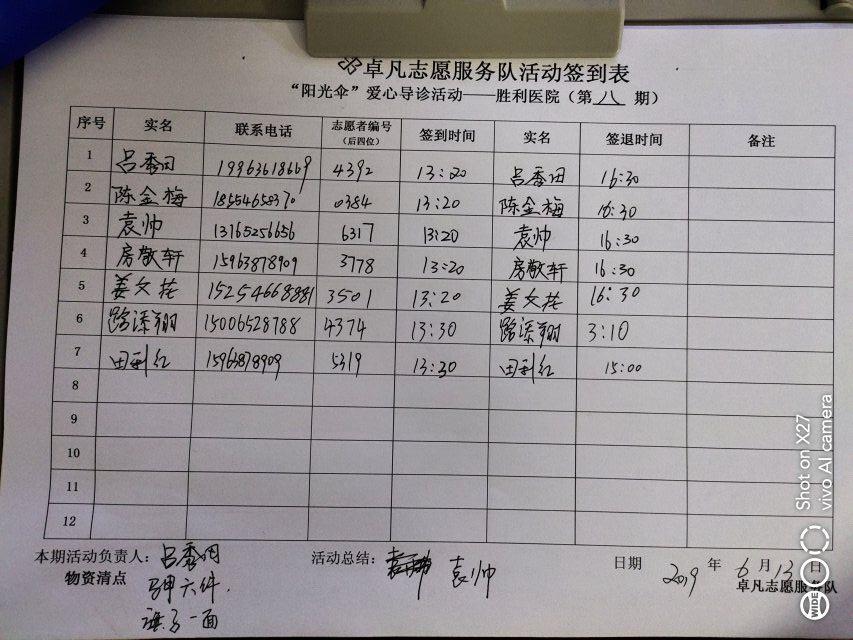 卓凡志愿服务队活动签到表
“阳光伞”爱心导诊活动——胜利医院（第 八 期）
序号 实名 联系电话 志愿者编号（后四位） 签到时间 实名 签退时间 备注
1 吕秀田 19963618669 4392 13:20 吕秀田 16:30
2 陈金梅 18554658370 0384 13:20 陈金梅 16:30
3 袁帅 13165256656 6317 13:20 袁帅 16:30
4 房敬轩 15963878909 3778 13:20 房敬轩 16:30
5 姜文花 15254668881 3501 13:20 姜文花 16:30
6 路添翔 15006528788 4374 13:30 路添翔 3:10
7 田利红 15963878909 5319 13:30 田利红 15:00
8
9
10
11
12
本期活动负责人：吕秀田 活动总结： 袁帅 日期 2019 年 6 月 13 日
物资清点 马甲六件. 卓凡志愿服务队
旗子一面
Shot on X27
vivo AI camera
WIDE